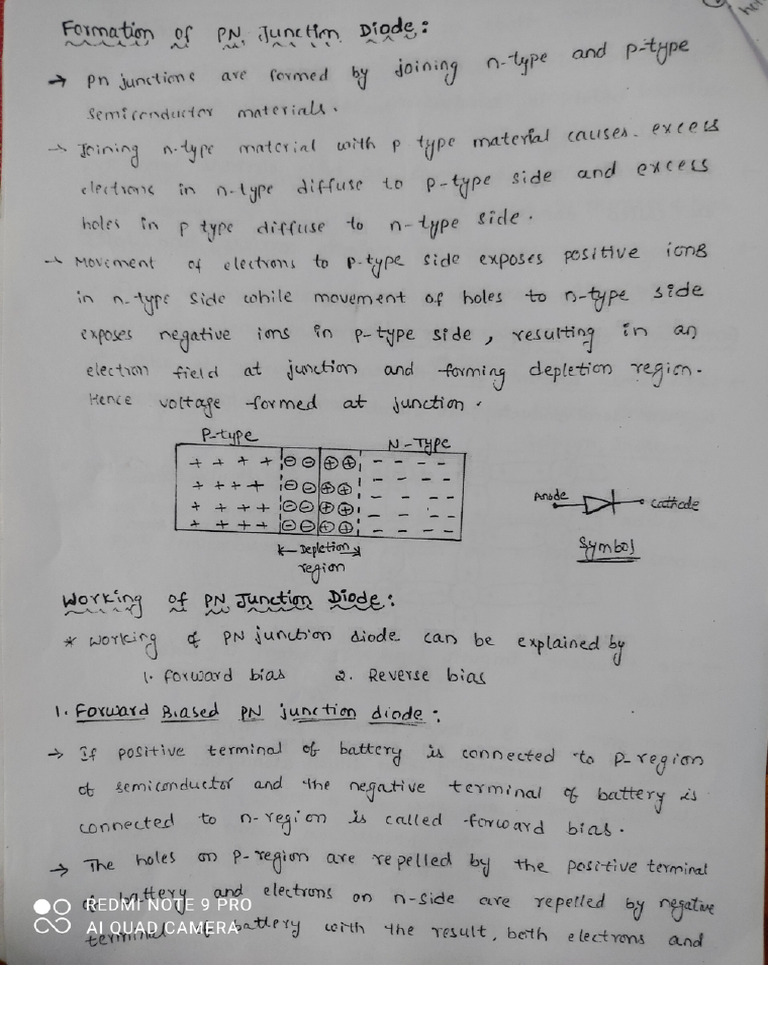 Formation of PN Junction Diode:
→ pn junctions are formed by joining n-type and p-type
semiconductor materials.
→ Joining n-type material with p type material causes. excess
electrons in n-type diffuse to p-type side and excess
holes in p type diffuse to n-type side.
→ Movement of electrons to p-type side exposes positive ions
in n-type side while movement of holes to n-type side
exposes negative ions in p-type side, resulting in an
electron field at junction and forming depletion region.
Hence voltage formed at junction.
P-type N-Type
+ + + + ⊖ ⊖ ⊕ ⊕ - - - -
+ + + + ⊖ ⊖ ⊕ ⊕ - - - -
+ + + + ⊖ ⊖ ⊕ ⊕ - - - -
+ + + + ⊖ ⊖ ⊕ ⊕ - - - -
Anode Cathode
Symbol
Depletion
region
Working of PN Junction Diode:
* Working of PN junction diode can be explained by
1. Forward bias 2. Reverse bias
1. Forward Biased PN junction diode:
→ If positive terminal of battery is connected to P-region
of semiconductor and the negative terminal of battery is
connected to n-region is called forward bias.
→ The holes on P-region are repelled by the positive terminal
of battery and electrons on n-side are repelled by negative
terminal of battery with the result, both electrons and
REDMI NOTE 9 PRO
AI QUAD CAMERA